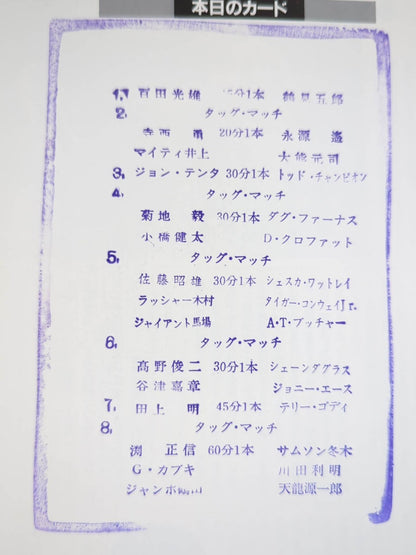 本日のカード
1. 百田光雄 15分1本 鶴見五郎
2. タッグ・マッチ
寺西 勇 20分1本 永源 遙
マイティ井上 大熊元司
3. ジョン・テンタ 30分1本 トッド・チャンピオン
4. タッグ・マッチ
菊地 毅 30分1本 ダグ・ファーナス
小橋健太 D・クロファット
5. タッグ・マッチ
佐藤昭雄 30分1本 シェスカ・ワットレイ
ラッシャー木村 タイガー・コンウェイJr.
ジャイアント馬場 A・T・ブッチャー
6. タッグ・マッチ
高野俊二 30分1本 シェーンダグラス
谷津嘉章 ジョニー・エース
7. 田上 明 45分1本 テリー・ゴディ
8. タッグ・マッチ
渕 正信 60分1本 サムソン冬木
G・カブキ 川田利明
ジャンボ鶴田 天龍源一郎